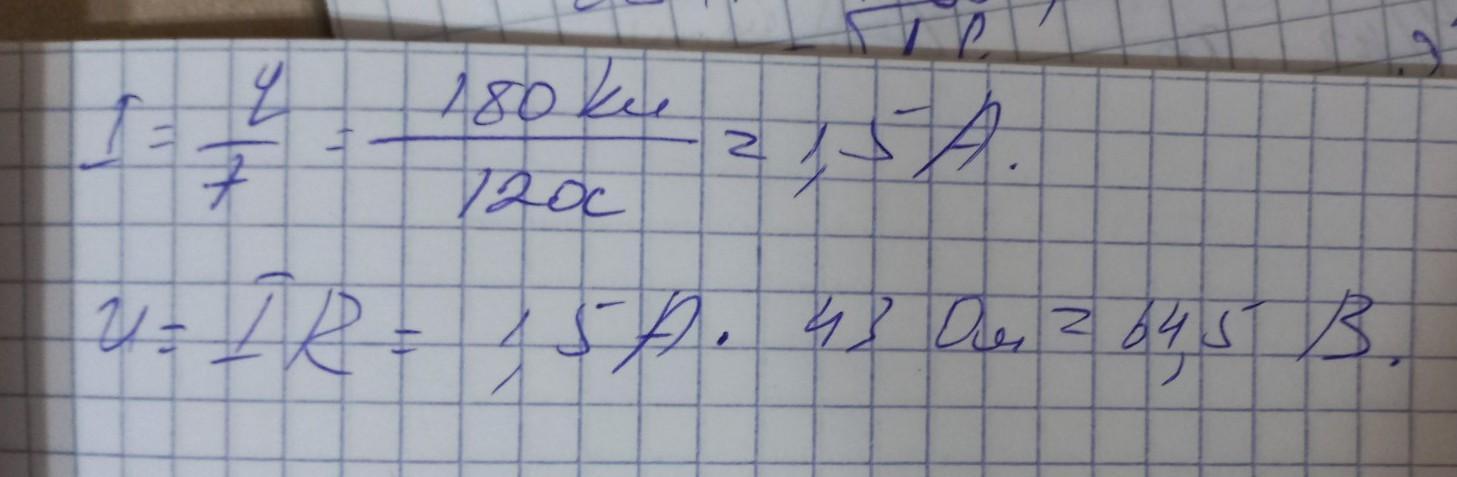 I = q/t = 180 Кл / 120 с = 1,5 А.
U = IR = 1,5 А · 43 Ом = 64,5 В.